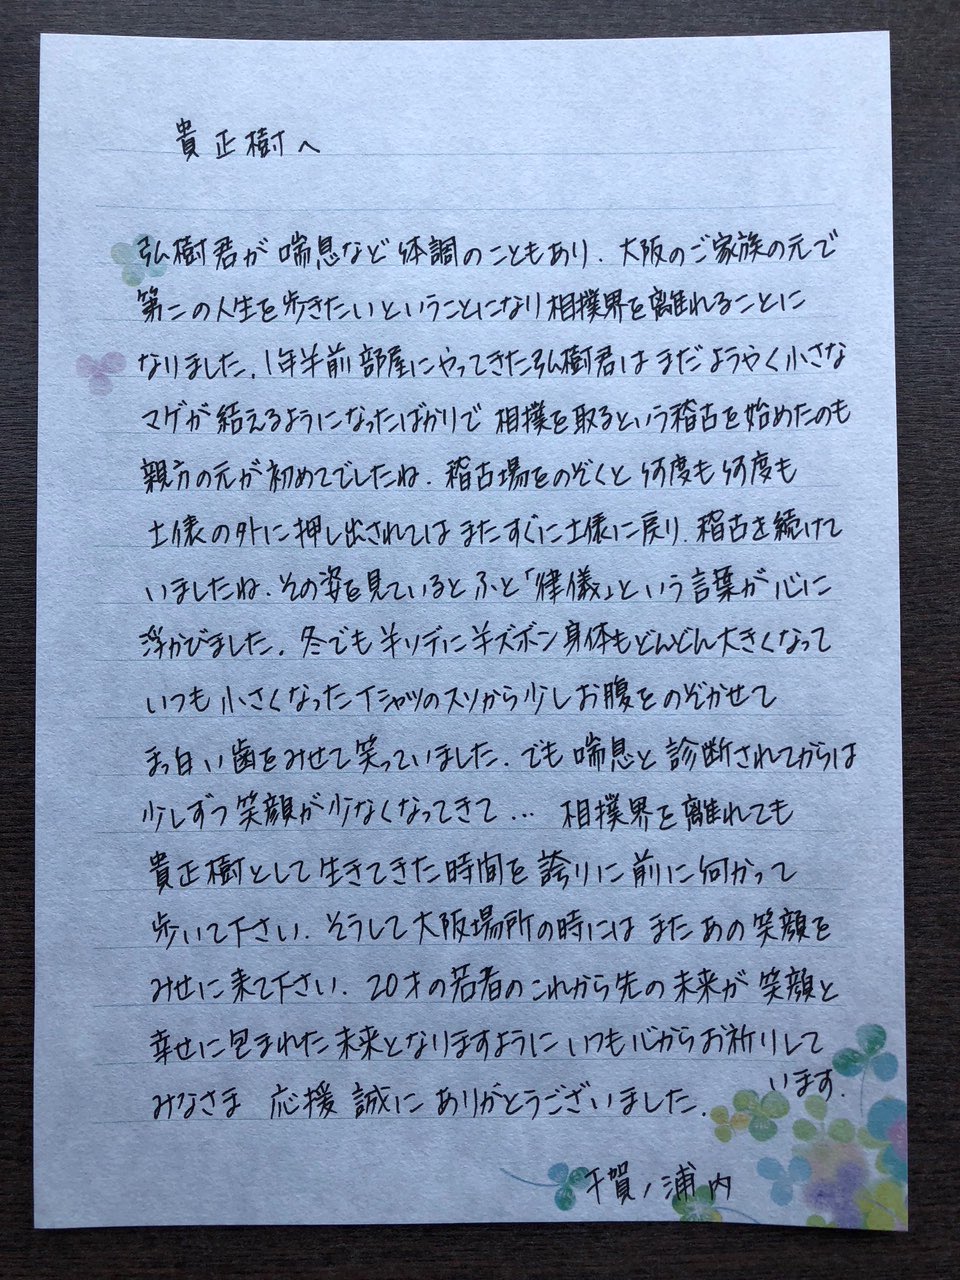 貴正樹へ
弘樹君が喘息など体調のこともあり、大阪のご家族の元で
第二の人生を歩きたいということになり相撲界を離れることに
なりました。1年半前部屋にやってきた弘樹君はまだようやく小さな
マゲが結えるようになったばかりで相撲を取るという稽古を始めたのも
親方の元が初めてでしたね。稽古場をのぞくと何度も何度も
土俵の外に押し出されてはまたすぐに土俵に戻り、稽古を続けて
いましたね。その姿を見ているとふと「律儀」という言葉が心に
浮かびました。冬でも半ソデに半ズボン身体もどんどん大きくなって
いつも小さくなったTシャツのスソから少しお腹をのぞかせて
まっ白い歯をみせて笑っていました。でも喘息と診断されてからは
少しずつ笑顔が少なくなってきて… 相撲界を離れても
貴正樹として生きてきた時間を誇りに前に向かって
歩いて下さい。そうして大阪場所の時にはまたあの笑顔を
みせに来て下さい。20才の若者のこれから先の未来が笑顔と
幸せに包まれた未来となりますようにいつも心からお祈りして
います。
みなさま 応援 誠にありがとうございました。
千賀ノ浦内